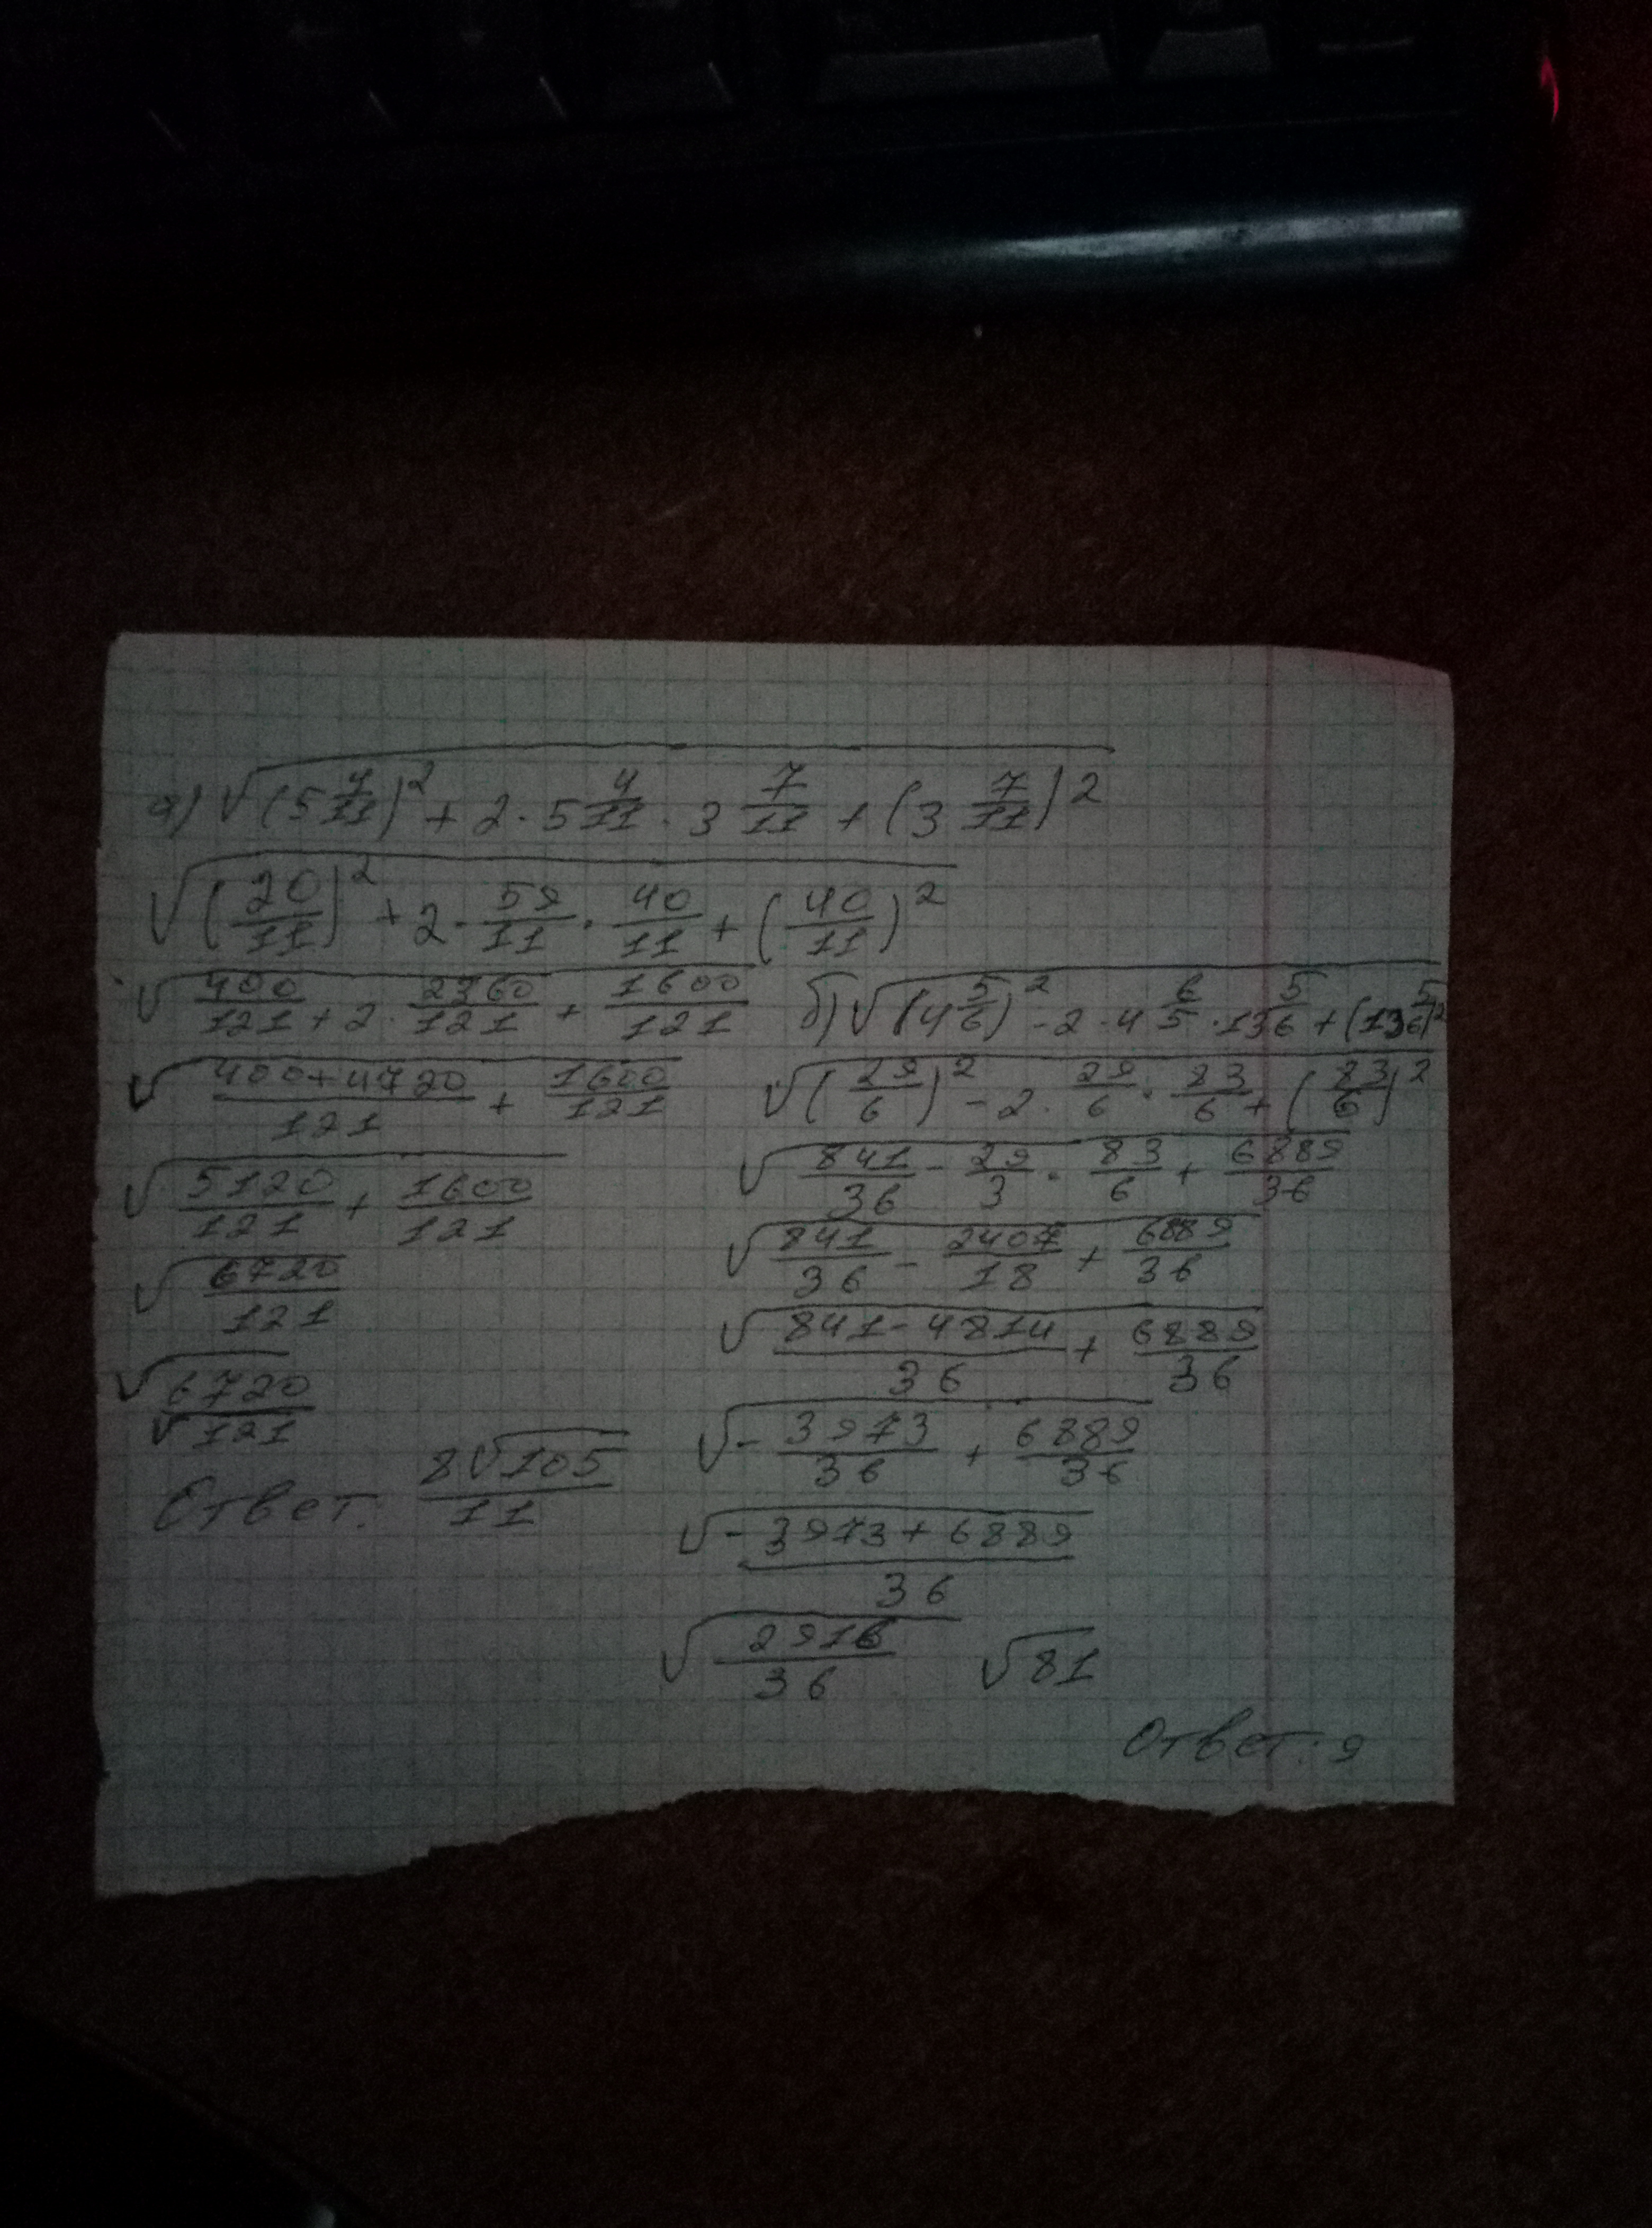 а) √((5 4/11)² + 2 · 5 4/11 · 3 7/11 + (3 7/11)²)
√((20/11)² + 2 · 59/11 · 40/11 + (40/11)²)
√(400/121 + 2 · 2360/121 + 1600/121)
√((400+4720)/121 + 1600/121)
√(5120/121 + 1600/121)
√(6720/121)
√6720/√121
Ответ: 8√105/11
б) √((4 5/6)² - 2 · 4 6/5 · 13 5/6 + (13 5/6)²)
√((29/6)² - 2 · 29/6 · 83/6 + (83/6)²)
√(841/36 - 29/3 · 83/6 + 6889/36)
√(841/36 - 2407/18 + 6889/36)
√((841-4814)/36 + 6889/36)
√(-3973/36 + 6889/36)
√((-3973+6889)/36)
√(2916/36) √81
Ответ: 9